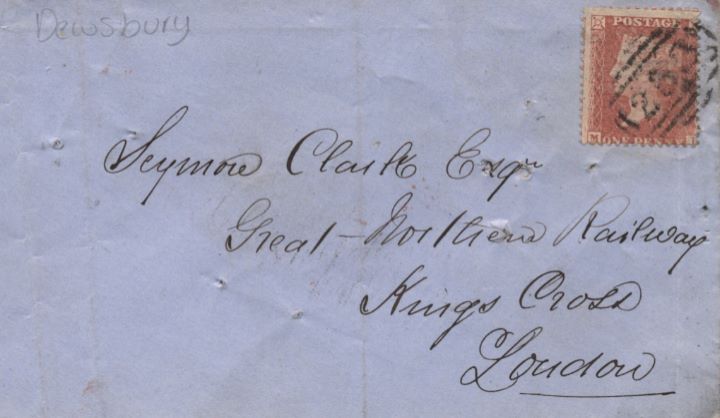 Dewsbury
POSTAGE
ONE PENNY
M
Seymore Clark Esqr
Great Northern Railway
Kings Cross
London